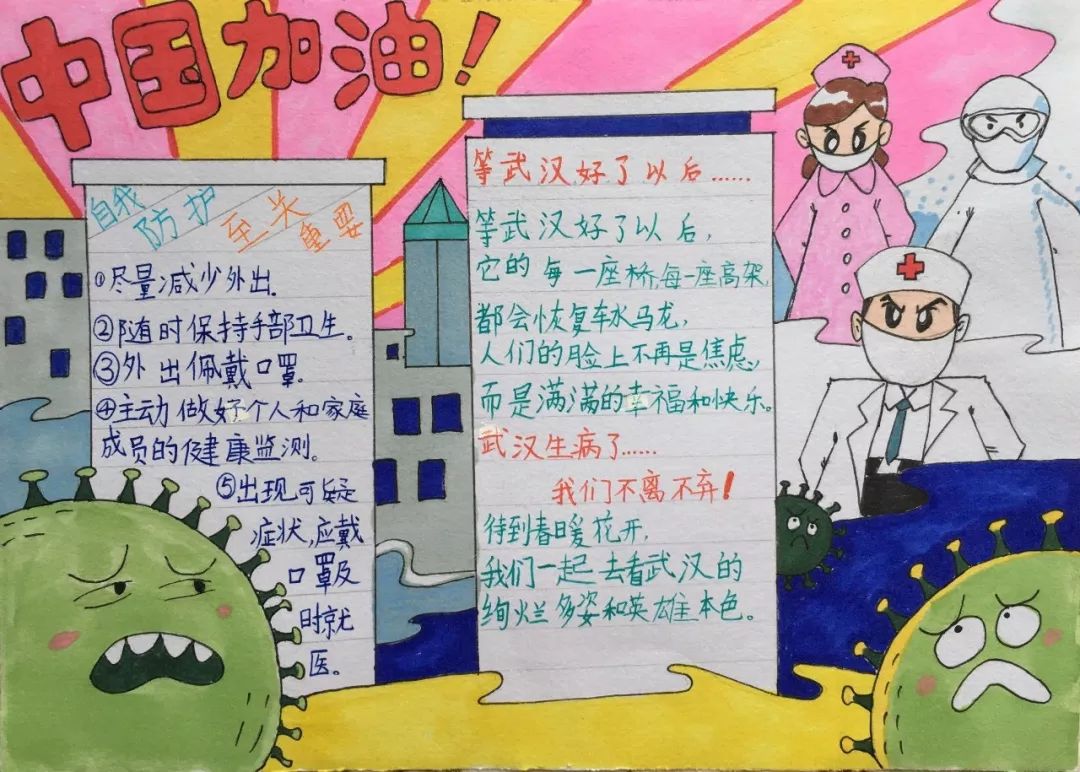 中国加油！
自我
防护
至关
重要
①尽量减少外出.
②随时保持手部卫生。
③外出佩戴口罩.
④主动做好个人和家庭
成员的健康监测。
⑤出现可疑
症状,应戴
口罩及
时就
医。
等武汉好了以后……
等武汉好了以后,
它的每一座桥,每一座高架,
都会恢复车水马龙,
人们的脸上不再是焦虑,
而是满满的幸福和快乐。
武汉生病了……
我们不离不弃！
待到春暖花开,
我们一起去看武汉的
绚烂多姿和英雄本色。